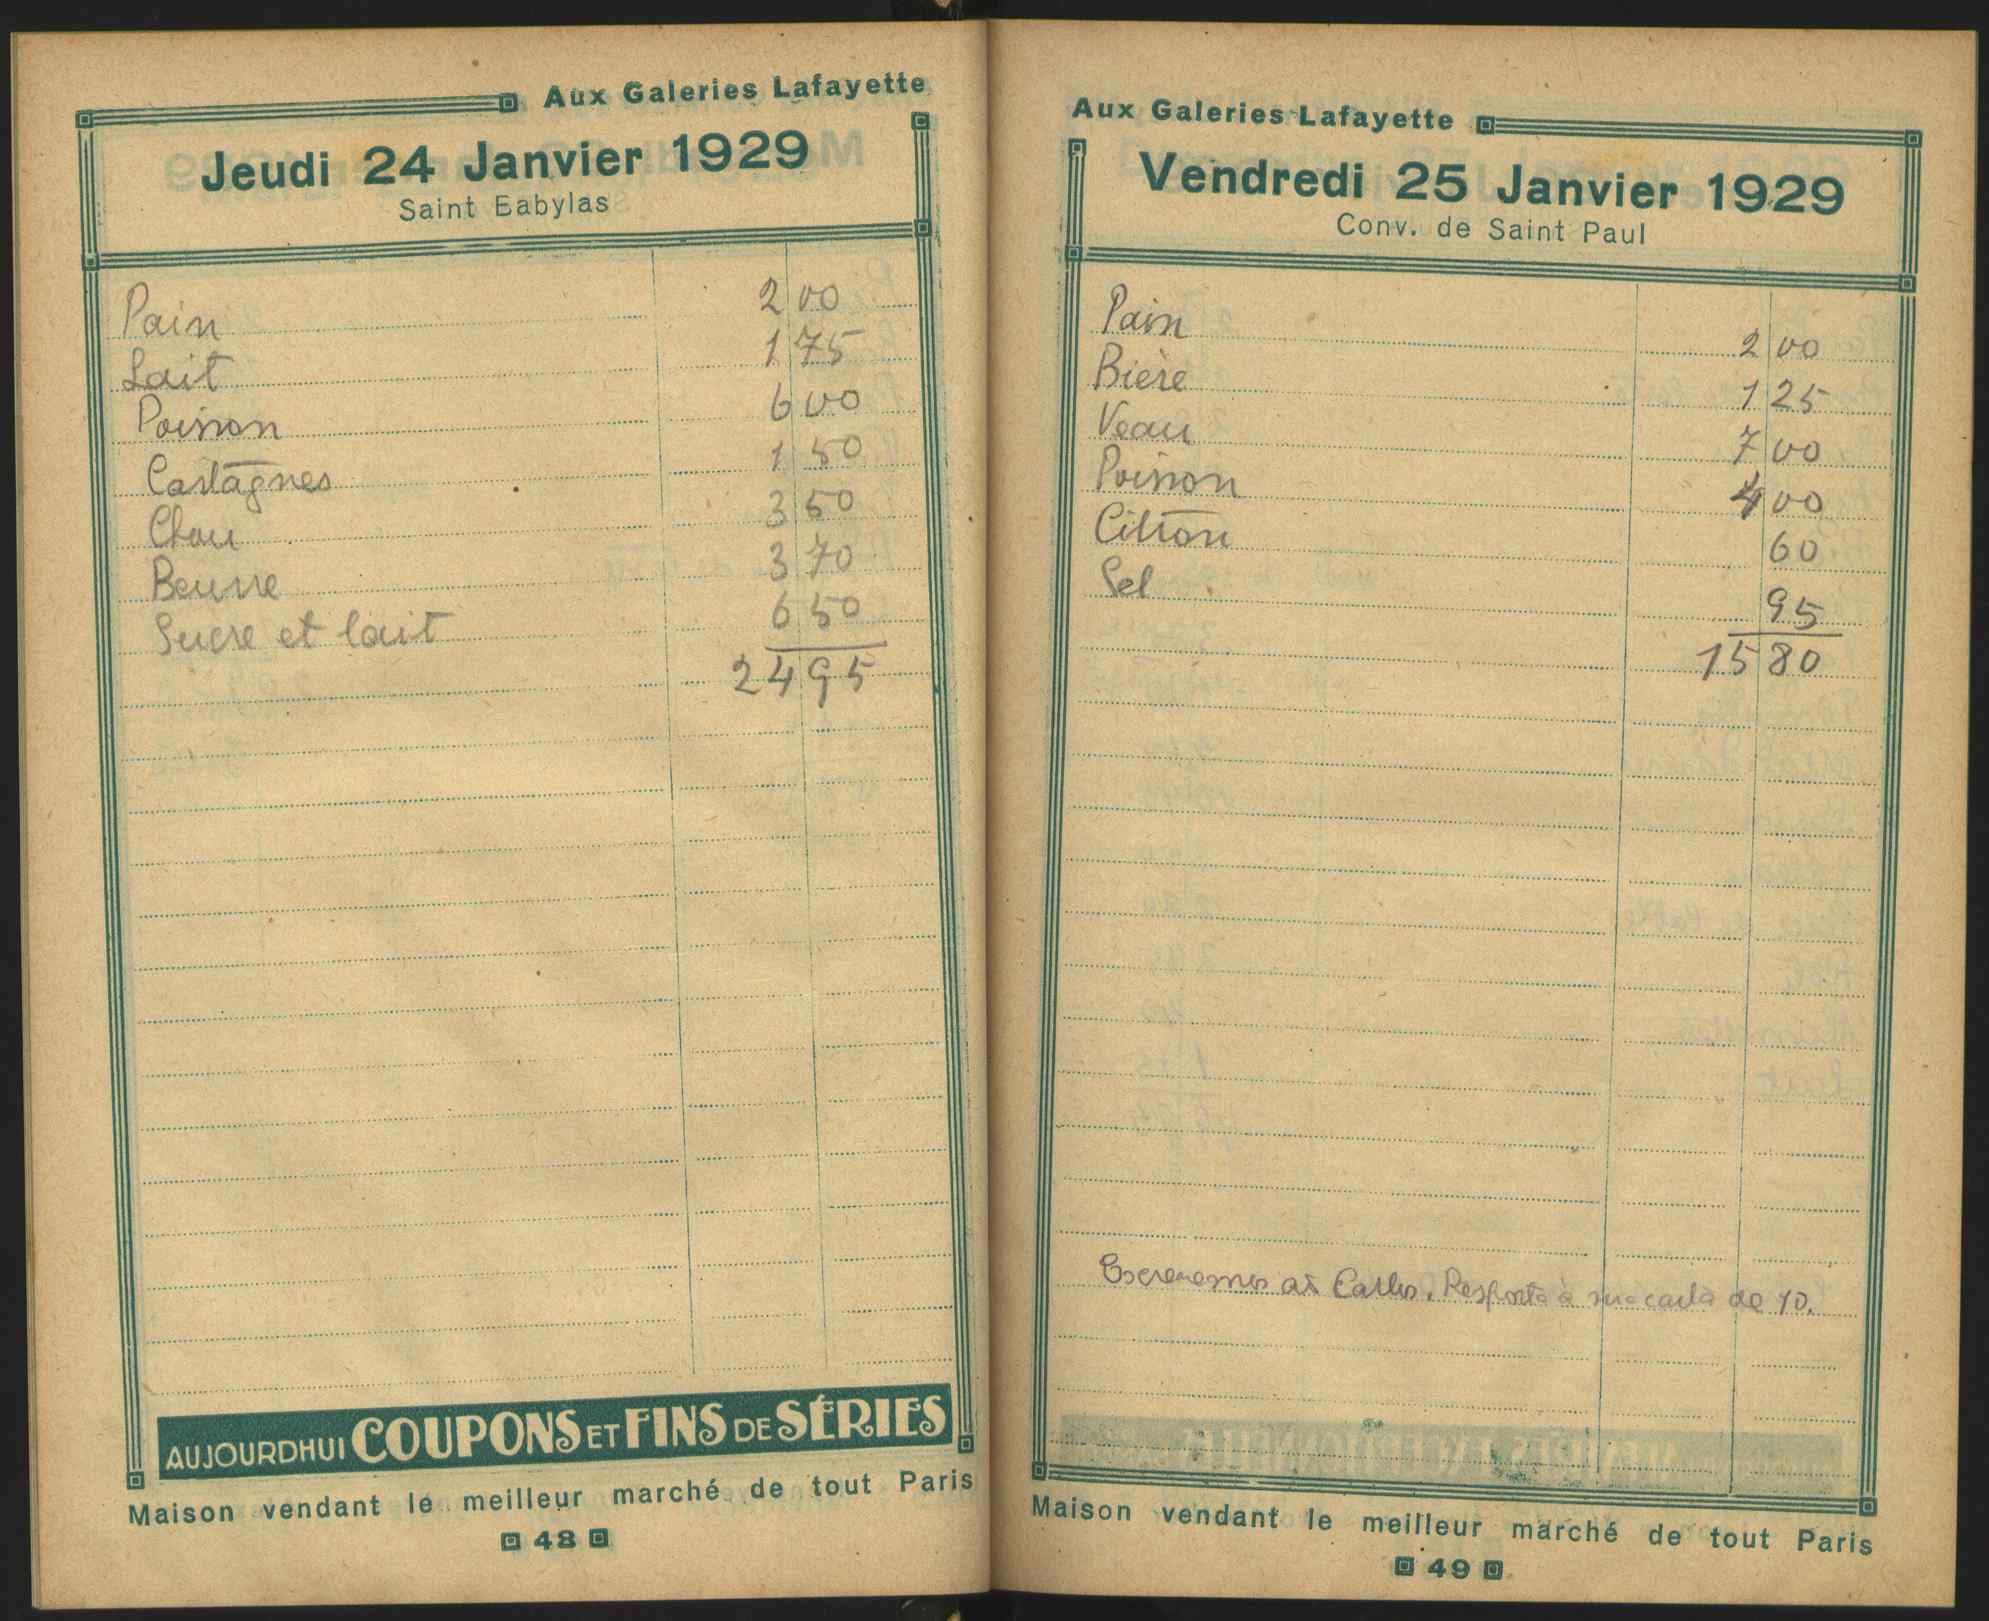 Aux Galeries Lafayette
Jeudi 24 Janvier 1929
Saint Eabylas
Pain 2 00
Lait 1 75
Poisson 6 00
Castagnes 1 50
Chou 3 50
Beurre 3 70
Sucre et lait 6 50
24 95
AUJOURDHUI COUPONS ET FINS DE SÉRIES
Maison vendant le meilleur marché de tout Paris
48
Aux Galeries Lafayette
Vendredi 25 Janvier 1929
Conv. de Saint Paul
Pain 2 00
Bière 1 25
Veau 7 00
Poisson 4 00
Citron 60
Sel 95
15 80
Escrevemos ao Carlos. Resposta à sua carta de 10.
Maison vendant le meilleur marché de tout Paris
49